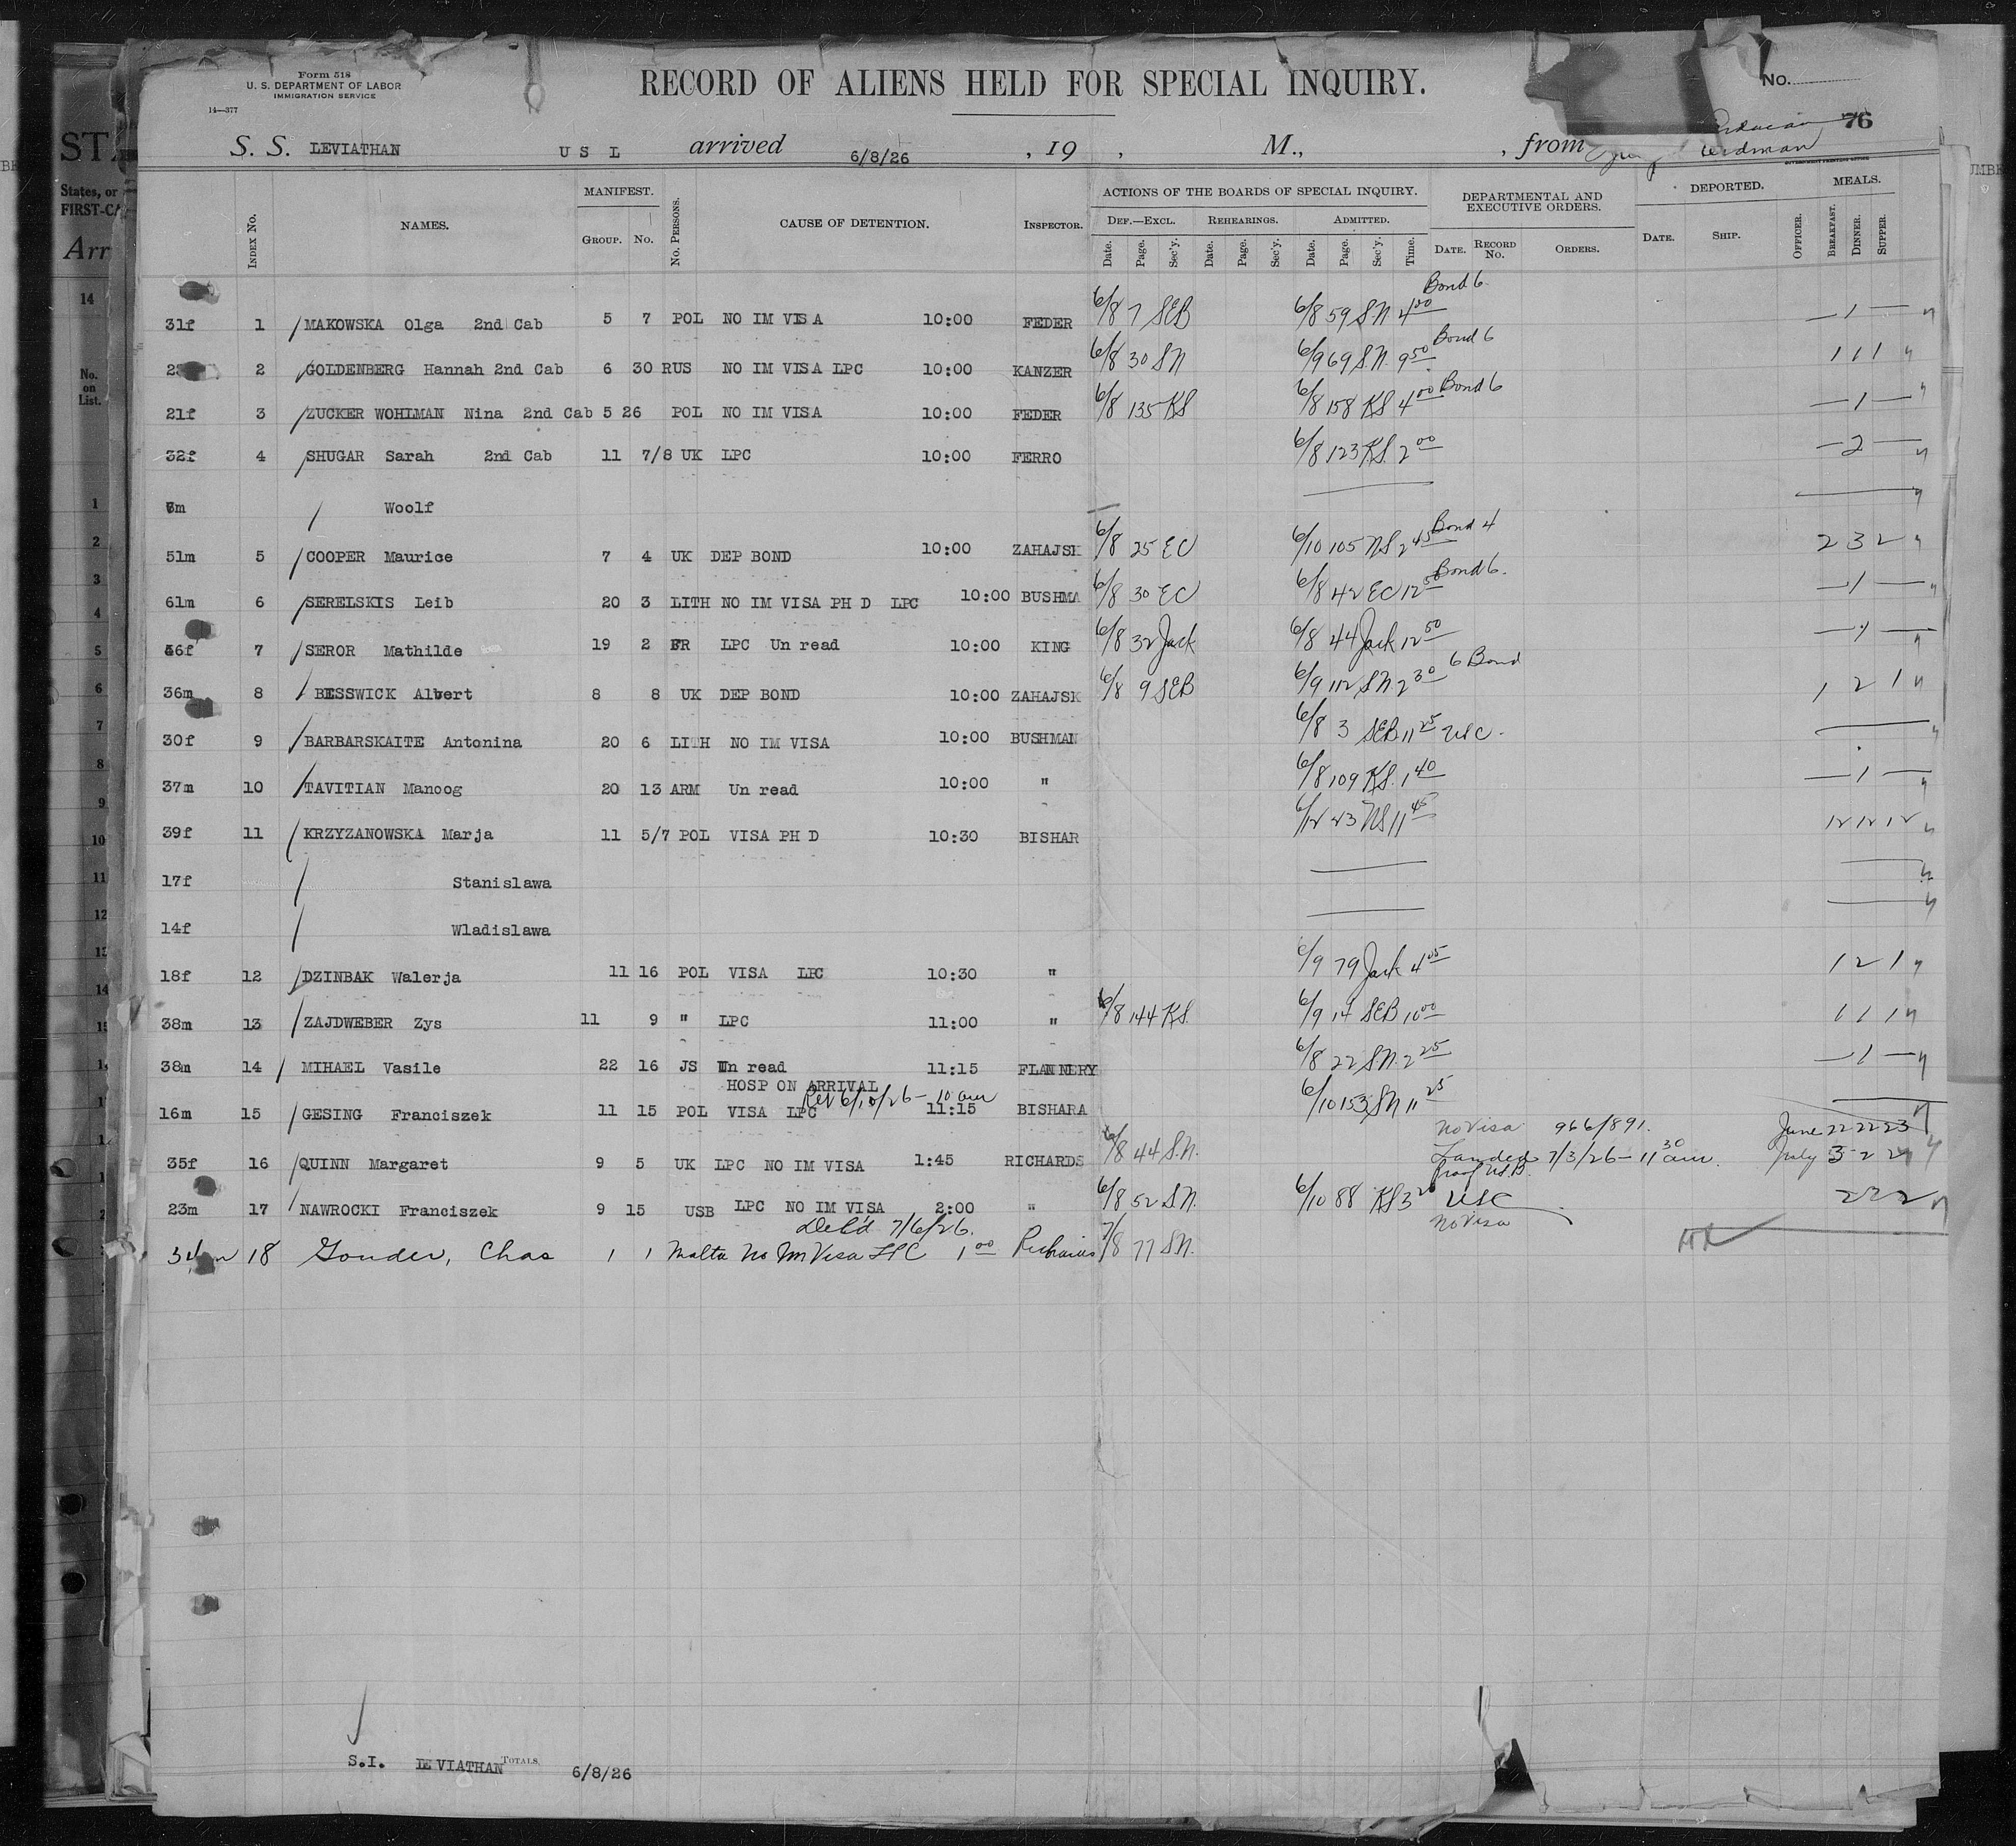 Form 518
U. S. DEPARTMENT OF LABOR
IMMIGRATION SERVICE
14—377
RECORD OF ALIENS HELD FOR SPECIAL INQUIRY.
No.
76
S. S. LEVIATHAN U S L arrived 6/8/26, 19 , M., , from
GOVERNMENT PRINTING OFFICE
INDEX NO. NAMES. MANIFEST. GROUP. NO. NO. PERSONS. CAUSE OF DETENTION. INSPECTOR. ACTIONS OF THE BOARDS OF SPECIAL INQUIRY. DEF.—EXCL. REHEARINGS. ADMITTED. DEPARTMENTAL AND EXECUTIVE ORDERS. DEPORTED. MEALS.
Date. Page. Sec'y. Date. Page. Sec'y. Date. Page. Sec'y. Time. DATE. RECORD NO. ORDERS. DATE. SHIP. OFFICER. BREAKFAST. DINNER. SUPPER.
31f 1 / MAKOWSKA Olga 2nd Cab 5 7 POL NO IM VISA 10:00 FEDER 6/8 7 SEB 6/8 59 S.N. 4 00 Bond 6 — 1 —
2 / GOLDENBERG Hannah 2nd Cab 6 30 RUS NO IM VISA LPC 10:00 KANZER 6/8 30 SN 6/9 69 S.N. 9 50 Bond 6 1 1 1
21f 3 / ZUCKER WOHLMAN Nina 2nd Cab 5 26 POL NO IM VISA 10:00 FEDER 6/8 135 KS 6/8 158 KS 4 00 Bond 6 — 1 —
32f 4 / SHUGAR Sarah 2nd Cab 11 7/8 UK LPC 10:00 FERRO 6/8 123 K.S. 2 00 — 2 —
/ Woolf
51m 5 / COOPER Maurice 7 4 UK DEP BOND 10:00 ZAHAJSK 6/8 25 EC 6/10 105 NS 2 45 Bond 4 2 3 2
61m 6 / SERELSKIS Leib 20 3 LITH NO IM VISA PH D LPC 10:00 BUSHMA 6/8 30 EC 6/8 42 EC 12 50 Bond 6. — 1 —
7 / SEROR Mathilde 19 2 FR LPC Un read 10:00 KING 6/8 32 Jack 6/8 44 Jack 12 50 — 1 —
36m 8 / BESSWICK Albert 8 8 UK DEP BOND 10:00 ZAHAJSK 6/8 9 SEB 6/9 112 S.N. 2 30 6 Bond 1 2 1
30f 9 / BARBARSKAITE Antonina 20 6 LITH NO IM VISA 10:00 BUSHMAN 6/8 3 SEB 11 25 USC.
37m 10 / TAVITIAN Manoog 20 13 ARM Un read 10:00 " 6/8 109 KS. 1 40 — 1 —
39f 11 / KRZYZANOWSKA Marja 11 5/7 POL VISA PH D 10:30 BISHAR 6/12 23 NS 11 45 12 12 12
17f / Stanislawa
14f / Wladislawa
18f 12 / DZINBAK Walerja 11 16 POL VISA LPC 10:30 " 6/9 79 Jack 4 05 1 2 1
38m 13 / ZAJDWEBER Zys 11 9 " LPC 11:00 " 6/8 144 K.S. 6/9 14 SEB 10 00 1 1 1
38m 14 / MIHAEL Vasile 22 16 JS Un read 11:15 FLANNERY 6/8 22 S.N. 2 25 — 1 —
HOSP ON ARRIVAL
Rel 6/10/26 – 10 am
16m 15 / GESING Franciszek 11 15 POL VISA LPC 11:15 BISHARA 6/10 153 SN 11 25
No Visa 966/891. June 22 22 23
35f 16 / QUINN Margaret 9 5 UK LPC NO IM VISA 1:45 RICHARDS 6/8 44 S.N. Landed 7/3/26 – 11 30 am. July 3 2 2
Proof U.S.B.
23m 17 NAWROCKI Franciszek 9 15 USB LPC NO IM VISA 2:00 " 6/8 52 S.N. 6/10 88 KS 3 20 USC 2 2 2
Det'd 7/6/26. No Visa
18 Gouder, Chas 1 1 Malta No Im Visa LPC 1 00 Richards 7/8 77 S.N.
S.I. LEVIATHAN TOTALS. 6/8/26